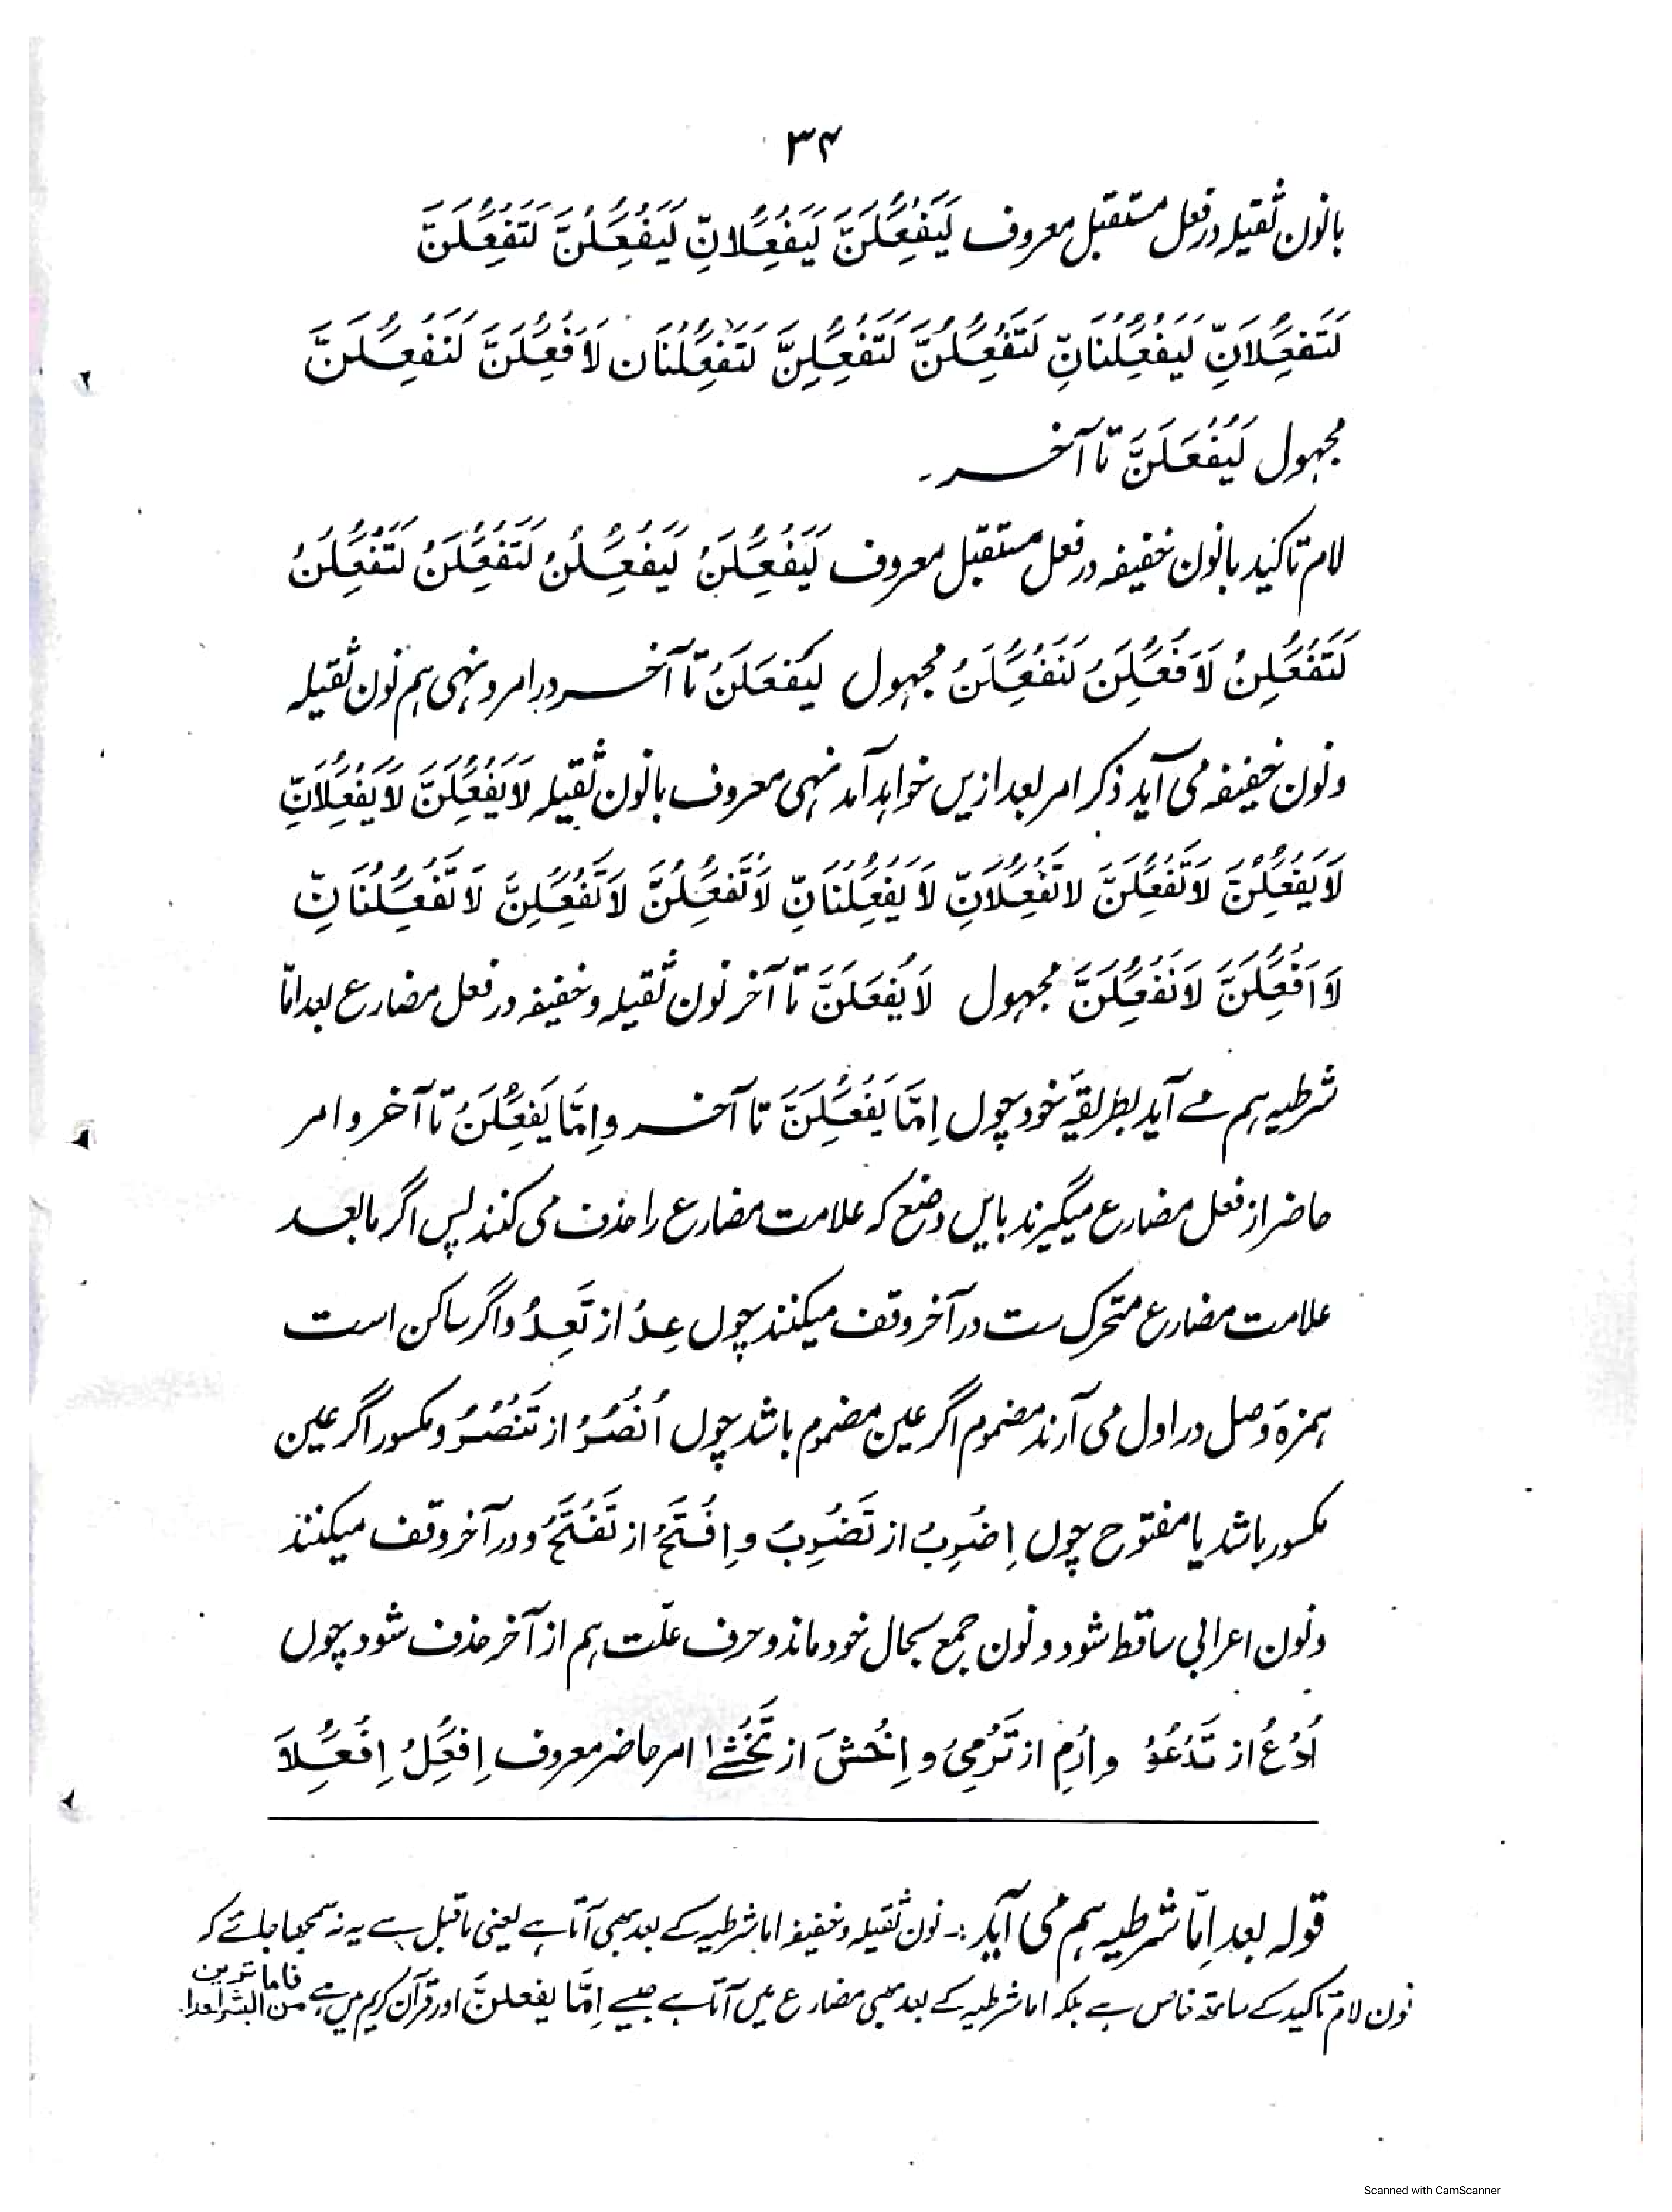 ۳۴
بانون ثقیلہ در فعل مستقبل معروف لَیَفْعَُِلَنَّ لَیَفْعَُِلَانِّ لَیَفْعَُِلُنَّ لَتَفْعَُِلَنَّ
لَتَفْعَُِلَانِّ لَیَفْعَُِلْنَانِّ لَتَفْعَُِلُنَّ لَتَفْعَُِلِنَّ لَتَفْعَُِلْنَان لَاَفْعَُِلَنَّ لَنَفْعَُِلَنَّ
مجہول لَیُفْعَلَنَّ تا آخر۔
لام تاکید بانون خفیفہ در فعل مستقبل معروف لَیَفْعَُِلَنْ لَیَفْعَُِلُنْ لَتَفْعَُِلَنْ لَتَفْعَُِلُنْ
لَتَفْعَُِلِنْ لَاَفْعَُِلَنْ لَنَفْعَُِلَنْ مجہول لَیُفْعَلَنْ تا آخر در امر و نہی ہم نون ثقیلہ
و نون خفیفہ می آید ذکر امر بعد ازیں خواہد آمد نہی معروف بانون ثقیلہ لَا یَفْعَُِلَنَّ لَا یَفْعَُِلَانِّ
لَا یَفْعَُِلُنَّ لَا تَفْعَُِلَنَّ لا تَفْعَُِلَانِّ لَا یَفْعَُِلْنَانِّ لَا تَفْعَُِلُنَّ لَا تَفْعَُِلِنَّ لَا تَفْعَُِلْنَانِّ
لَا اَفْعَُِلَنَّ لَا نَفْعَُِلَنَّ مجہول لَا یُفْعَلَنَّ تا آخر نون ثقیلہ و خفیفہ در فعل مضارع بعد امّا
شرطیہ ہم مے آید بطریقۂ خود چوں اِمَّا یَفْعَُِلَنَّ تا آخر و اِمَّا یَفْعَُِلَنْ تا آخر و امر
حاضر از فعل مضارع میگیرند بایں وضع کہ علامت مضارع را حذف می کنند پس اگر مابعد
علامت مضارع متحرک ست در آخر وقف میکنند چوں عِدْ از تَعِدُ و اگر ساکن است
ہمزۂ وصل در اول می آرند مضموم اگر عین مضموم باشد چوں اُنْصُرْ از تَنْصُرُ و مکسور اگر عین
مکسور باشد یا مفتوح چوں اِضْرِبْ از تَضْرِبُ و اِفْتَحْ از تَفْتَحُ و در آخر وقف میکنند
و نون اعرابی ساقط شود و نون جمع بحال خود ماند و حرف علّت ہم از آخر حذف شود چوں
اُدْعُ از تَدْعُوْ و ارْمِ از تَرْمِیْ و اِخْشَ از تَخْشٰے امر حاضر معروف اِفْعَُِلْ اِفْعَُِلَا
قولہ بعد اِمّا شرطیہ ہم می آید :۔ نون ثقیلہ و خفیفہ اما شرطیہ کے بعد بھی آتا ہے یعنی ماقبل سے یہ نہ سمجھا جائے کہ
نون لام تاکید کے ساتھ خاص ہے بلکہ اما شرطیہ کے بعد بھی مضارع میں آتا ہے جیسے اِمَّا یفعلنَّ اور قرآن کریم میں ہے فاما ترین من البشر احدا۔
Scanned with CamScanner